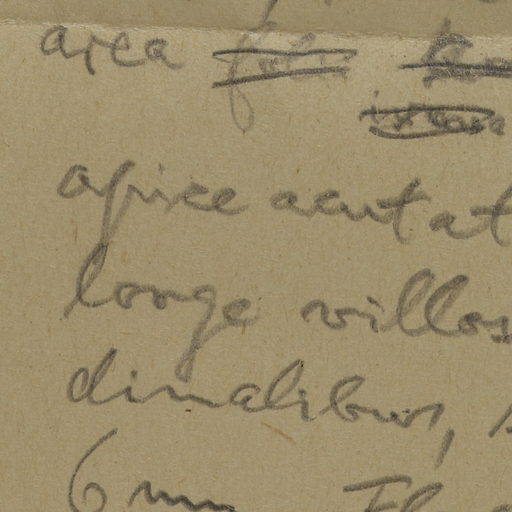 area
apice acutat
longe villos
dinalibus,
6 mm Fl